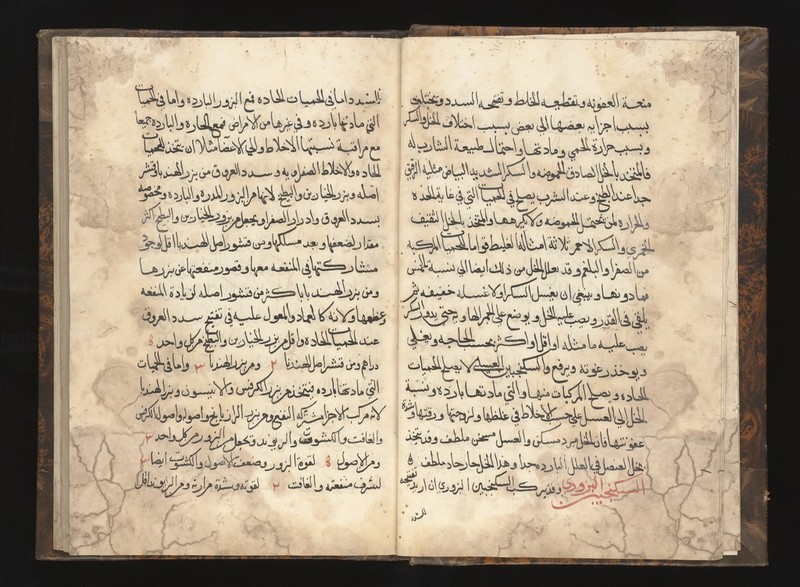 منعة العفونه وتقطيعه الخلط وتفتيحه السدد وتختلف
بسبب اجزايه بعضها الى بعض بسبب اختلاف الخل والسكر
وبسبب حرارة الحمى ومادتها واحتمال طبيعة الشارب له
فالمتخذ بالخل الصادق الحموضه والسكر الشديد البياض
جدا عند الطبخ وعند الشرب يصلح في الحميات التي في غاية الحده
والحراره لمن يحتمل الحموضه ولا يكرهها والمتخذ بالخل الثقيف
الخمري والسكر الاحمر ثلاثة امثاله الغليظ قواما للحميات المركبه
من الصفرا والبلغم وقد يقلل الخل من ذلك ايضا الى نسبة الخمس
فما دونها وينبغي ان يغسل السكر اولا غسله خفيفه ثم
يلقى في القدر ويصب عليه الخل ويوضع على الجمر الهادى حتى يذوب السكر
يصب عليه ما مثله او اقل او اكثر بحسب الحاجه ويغلى
ويوخذ رغوته ويرفع والسكنجبين العسلى لا يصلح للحميات
الحاده ويصلح المركبات منها والتي مادتها بارده ونسبة
الخل الى العسل على حسب الاخلاط في غلظها ولزوجتها ورقتها وشدة
عفونتها فان الخل مبرد مسكن والعسل مسخن ملطف وقد يتخذ
بخل العنصل في العلل البارده جدا وهذا الخل حار حاد ملطف
السكنجبين البزوري وقدير كب السكنجبين البزوري ان اريد تفتيحه
للسدد
للسدد اما في الحميات الحاده فمع البزور البارده واما في الحميات
التي مادتها بارده وفي غيرها من الامراض فمع الحارة والبارده جميعا
مع مراقبة نسبتها الاخلاط والى الاعضا مثلا ان يتخذ للحميات
الحاده والاخلاط الصفراويه وسدد العروق من بزر الهندبا وقشر
اصله وبزر الخيارين والبطيخ لانها من البزور المدرة والبارده ومخصوصه
بسدد العروق وادرار الصفرا ويجعل من بزور الخيارين والبطيخ اكثر
مقدار لضعفها وبعد مسلكها ومن قشور اصل الهندبا اقل لوجهى
مشاركتها في المنفعه معها وقصور منفعتها عن بزرها
ومن بزر الهندبا اكثر من قشور اصله لزيادة المنفعه
وعظمها ولانه كالعماد والمعول عليه في تفتيح سدد العروق
عند الحميات الحاده واقل من بزر الخيارين والبطيخ من كل واحد ٥
دراهم ومن قشر اصل الهندبا ٢ ومن بزر الهندبا ٣ واما في الحميات
التي مادتها بارده فيتخذ من بزر الكرفس والانيسون وبزر الهندبا
لانه مركب الاجزا مشترك النفع ومن بزر الرازيانج واصوله واصول الكرفس
والغافت والكشوث والريوند ويجعل من البزور من كل واحد ٣
ومن الاصول ٥ لقوة البزور وضعف الاصول والكشوث ايضا ٣
لشرف منفعته والغافت ٢ لقوته وشدة مرارته ومن الريوند اقل